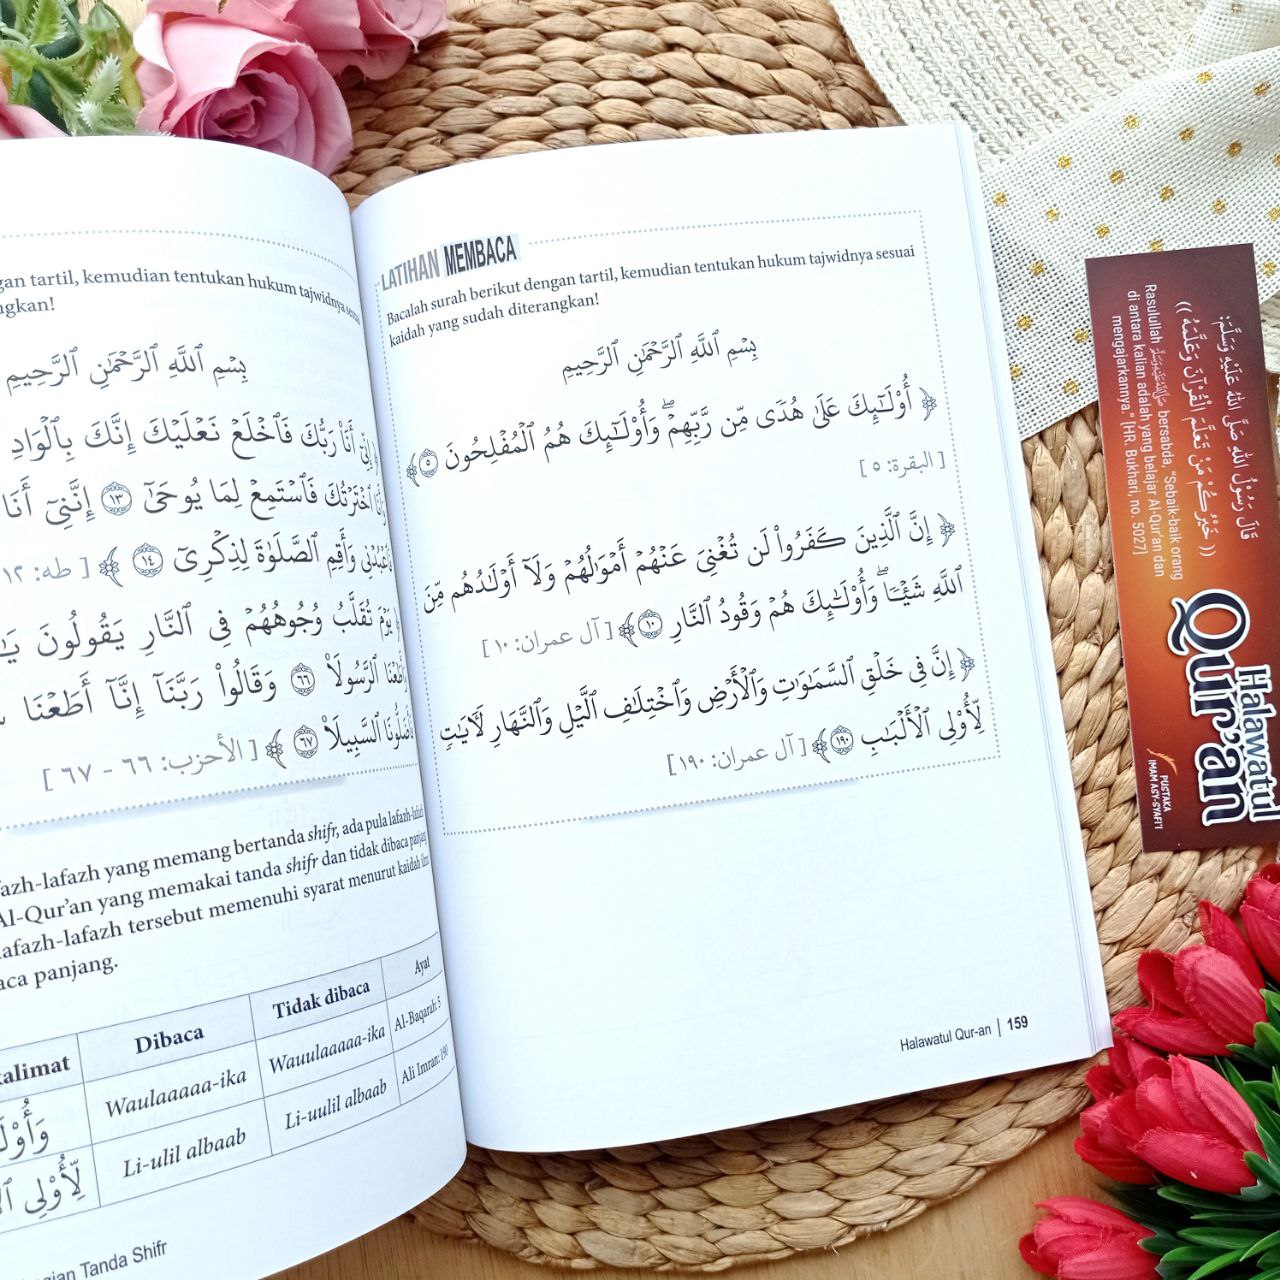 gan tartil, kemudian tentukan hukum tajwidnya sesuai
ngkan!
بِسْمِ ٱللَّهِ ٱلرَّحْمَٰنِ ٱلرَّحِيمِ
إِنِّىٓ أَنَا۠ رَبُّكَ فَٱخْلَعْ نَعْلَيْكَ إِنَّكَ بِٱلْوَادِ
وَأَنَا ٱخْتَرْتُكَ فَٱسْتَمِعْ لِمَا يُوحَىٰٓ ١٣ إِنَّنِىٓ أَنَا
فَٱعْبُدْنِى وَأَقِمِ ٱلصَّلَوٰةَ لِذِكْرِىٓ ١٤ ﴾ [ طه: ١٢
﴿ يَوْمَ تُقَلَّبُ وُجُوهُهُمْ فِى ٱلنَّارِ يَقُولُونَ
وَأَطَعْنَا ٱلرَّسُولَا۠ ٦٦ وَقَالُوا۟ رَبَّنَآ إِنَّآ أَطَعْنَا
فَأَضَلُّونَا ٱلسَّبِيلَا۠ ٦٧ ﴾ [ الأحزب: ٦٦ - ٦٧ ]
fazh-lafazh yang memang bertanda shifr, ada pula lafazh-lafazh
Al-Qur'an yang memakai tanda shifr dan tidak dibaca panjang
lafazh-lafazh tersebut memenuhi syarat menurut kaidah
aca panjang.
kalimat Dibaca Tidak dibaca Ayat
Waulaaaaa-ika Wauulaaaaa-ika Al-Baqarah: 5
Li-ulil albaab Li-uulil albaab Ali Imran: 190
gian Tanda Shifr
LATIHAN MEMBACA
Bacalah surah berikut dengan tartil, kemudian tentukan hukum tajwidnya sesuai
kaidah yang sudah diterangkan!
بِسْمِ ٱللَّهِ ٱلرَّحْمَٰنِ ٱلرَّحِيمِ
﴿ أُو۟لَٰٓئِكَ عَلَىٰ هُدًى مِّن رَّبِّهِمْ ۖ وَأُو۟لَٰٓئِكَ هُمُ ٱلْمُفْلِحُونَ ٥ ﴾
[ البقرة: ٥ ]
﴿ إِنَّ ٱلَّذِينَ كَفَرُوا۟ لَن تُغْنِىَ عَنْهُمْ أَمْوَٰلُهُمْ وَلَآ أَوْلَٰدُهُم مِّنَ
ٱللَّهِ شَيْـًٔا ۖ وَأُو۟لَٰٓئِكَ هُمْ وَقُودُ ٱلنَّارِ ١٠ ﴾ [ آل عمران: ١٠ ]
﴿ إِنَّ فِى خَلْقِ ٱلسَّمَٰوَٰتِ وَٱلْأَرْضِ وَٱخْتِلَٰفِ ٱلَّيْلِ وَٱلنَّهَارِ لَءَايَٰتٍ
لِّأُو۟لِى ٱلْأَلْبَٰبِ ١٩٠ ﴾ [ آل عمران: ١٩٠ ]
Halawatul Qur-an | 159
قَالَ رَسُوْلُ اللهِ صَلَّى اللهُ عَلَيْهِ وَسَلَّمَ:
(( خَيْرُكُمْ مَنْ تَعَلَّمَ الْقُرْآنَ وَعَلَّمَهُ ))
Rasulullah ﷺ bersabda, "Sebaik-baik orang
di antara kalian adalah yang belajar Al-Qur'an dan
mengajarkannya." [HR. Bukhari, no. 5027]
Halawatul
Qur'an
PUSTAKA
IMAM ASY-SYAFI'I